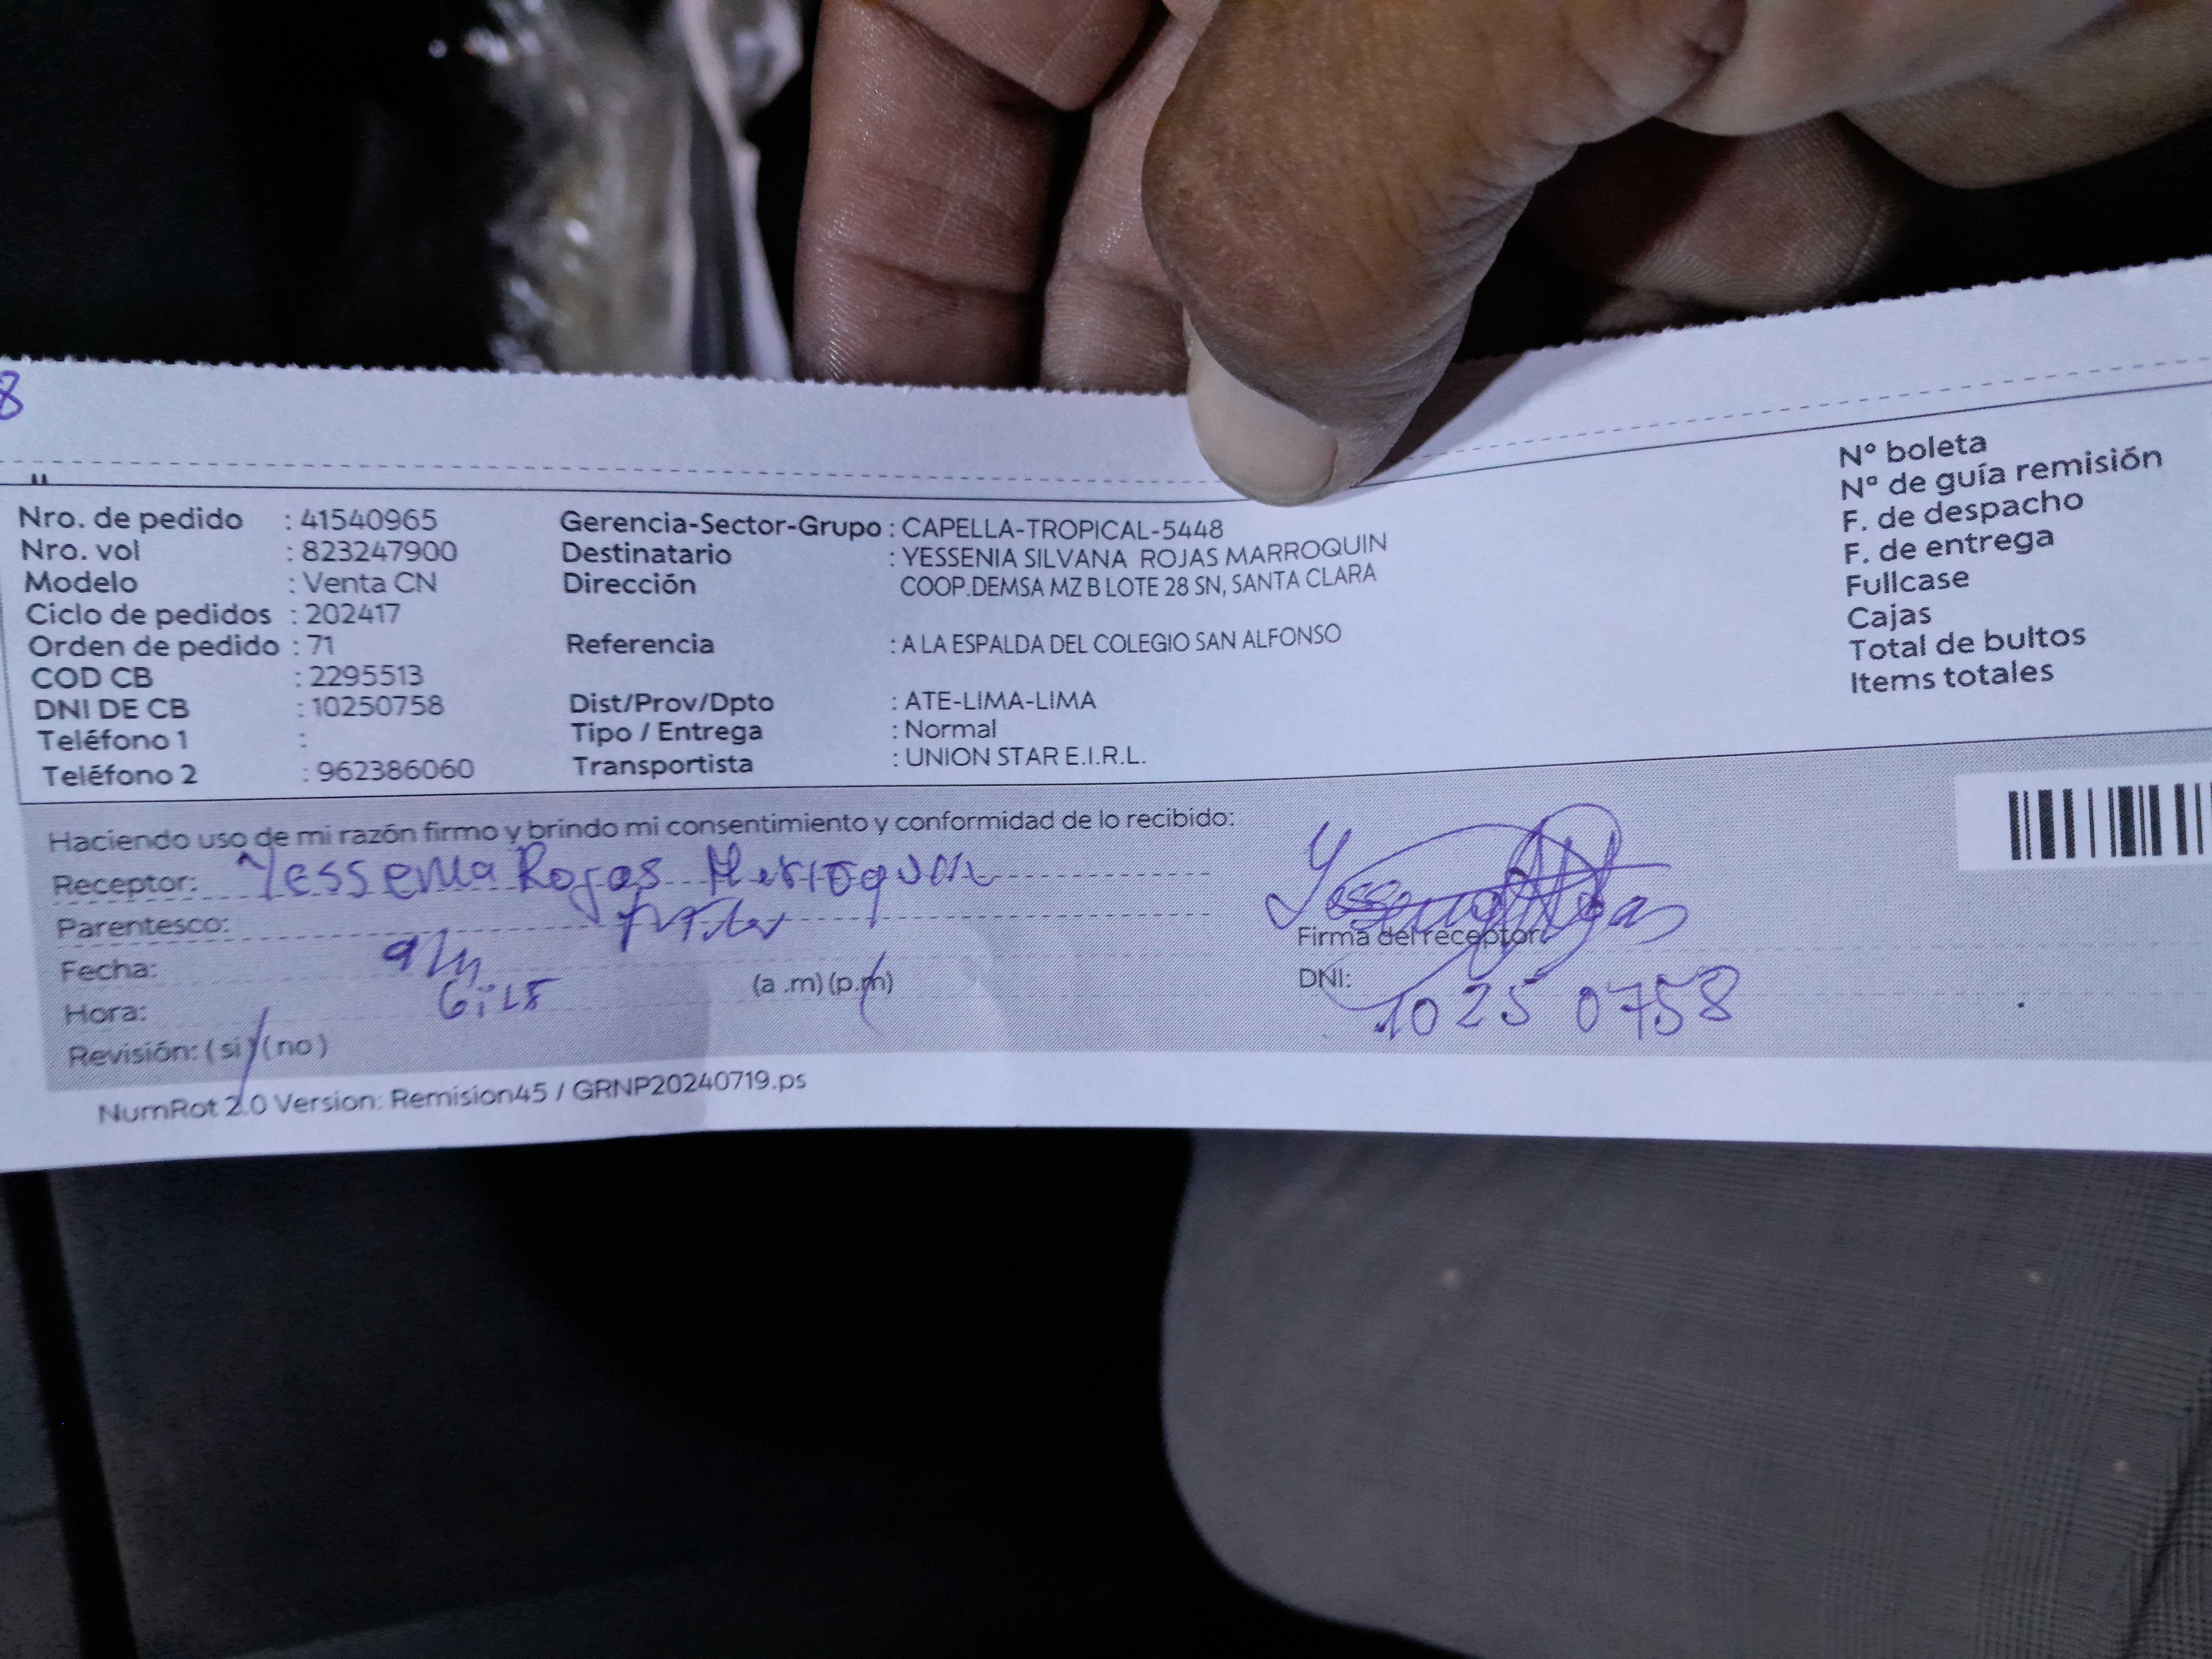 8
Nro. de pedido : 41540965
Nro. vol : 823247900
Modelo : Venta CN
Ciclo de pedidos : 202417
Orden de pedido : 71
COD CB : 2295513
DNI DE CB : 10250758
Teléfono 1 :
Teléfono 2 : 962386060
Gerencia-Sector-Grupo : CAPELLA-TROPICAL-5448
Destinatario : YESSENIA SILVANA ROJAS MARROQUIN
Dirección COOP.DEMSA MZ B LOTE 28 SN, SANTA CLARA
Referencia : A LA ESPALDA DEL COLEGIO SAN ALFONSO
Dist/Prov/Dpto : ATE-LIMA-LIMA
Tipo / Entrega : Normal
Transportista : UNION STAR E.I.R.L.
Nº boleta
Nº de guía remisión
F. de despacho
F. de entrega
Fullcase
Cajas
Total de bultos
Items totales
Haciendo uso de mi razón firmo y brindo mi consentimiento y conformidad de lo recibido:
Receptor: Yessenia Rojas
Parentesco:
Fecha:
Hora: (a .m) (p.m)
Revisión: ( si ) ( no )
Firma del receptor:
DNI: 10250758
NumRot 2.0 Version: Remision45 / GRNP20240719.ps